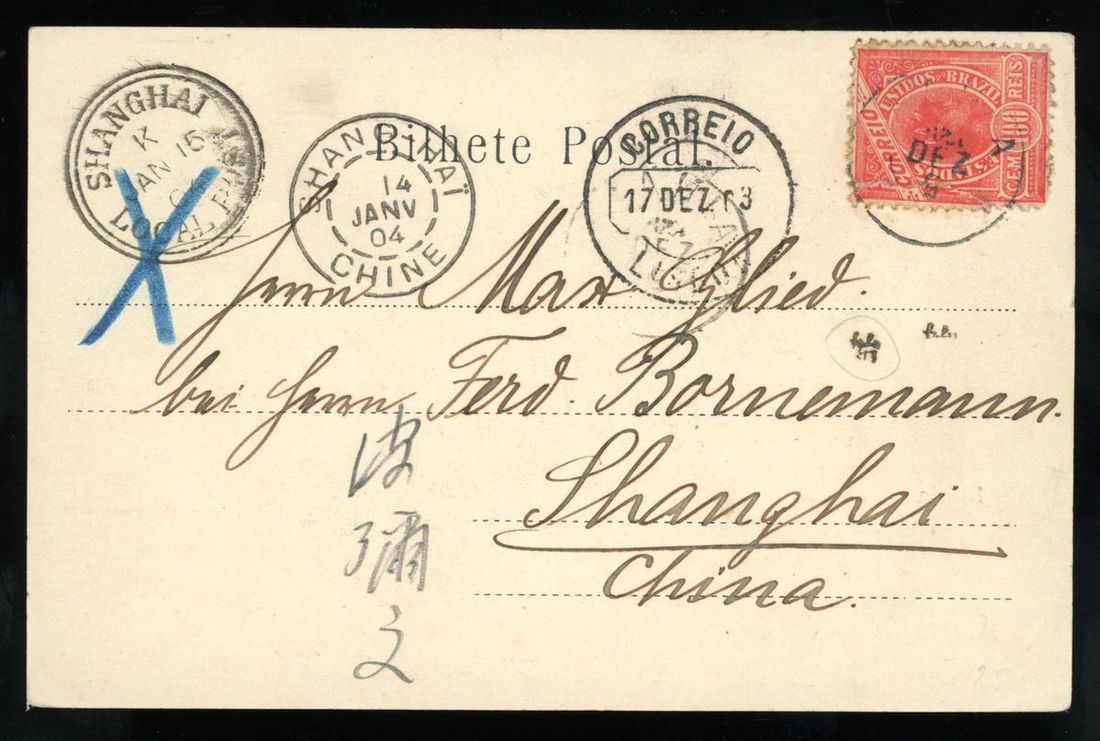 SHANGHAI
K
JAN 15
LOCAL P
SHANG-HAÏ
14
JANV
04
CHINE
Bilhete Postal.
CORREIO
17 DEZ 03
UNIDOS DO BRAZIL
CORREIO
CEM 100 REIS
DEZ
Herrn Max Glied.
bei Herrn Ferd. Bornemann.
Shanghai
China.
波
彌
文
25